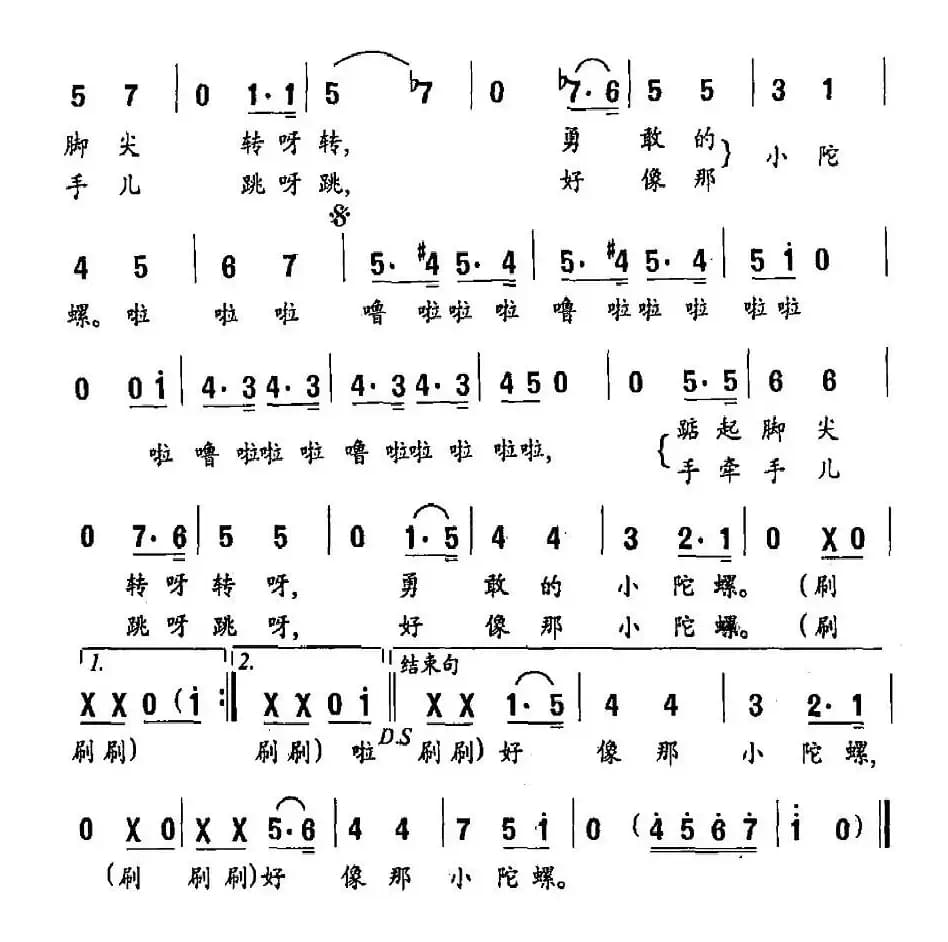 5 7 | 0 1·1 | 5 ♭7 | 0 ♭7·6 | 5 5 | 3 1 |
脚尖 转呀转, 勇敢的 } 小陀
手儿 跳呀跳, 好像那
𝄋
4 5 | 6 7 | 5·#4 5·4 | 5·#4 5·4 | 5 i 0 |
螺。啦 啦 啦 噜 啦啦 啦 噜 啦啦 啦 啦啦
0 0 i | 4·3 4·3 | 4·3 4·3 | 4 5 0 | 0 5·5 | 6 6 |
啦 噜 啦啦 啦 噜 啦啦 啦 啦啦, { 踮起脚尖
手牵手儿
0 7·6 | 5 5 | 0 1·5 | 4 4 | 3 2·1 | 0 X 0 |
转呀转呀, 勇敢的小陀螺。(刷
跳呀跳呀, 好像那小陀螺。(刷
1. 2. 结束句
X X 0 (i :‖ X X 0 i ‖ X X 1·5 | 4 4 | 3 2·1 |
刷刷) 刷刷) 啦 D.S 刷刷) 好 像那 小陀螺,
0 X 0 | X X 5·6 | 4 4 | 7 5 i | 0 (4 5 6 7 | i 0) ‖
(刷 刷刷)好 像那 小陀螺。